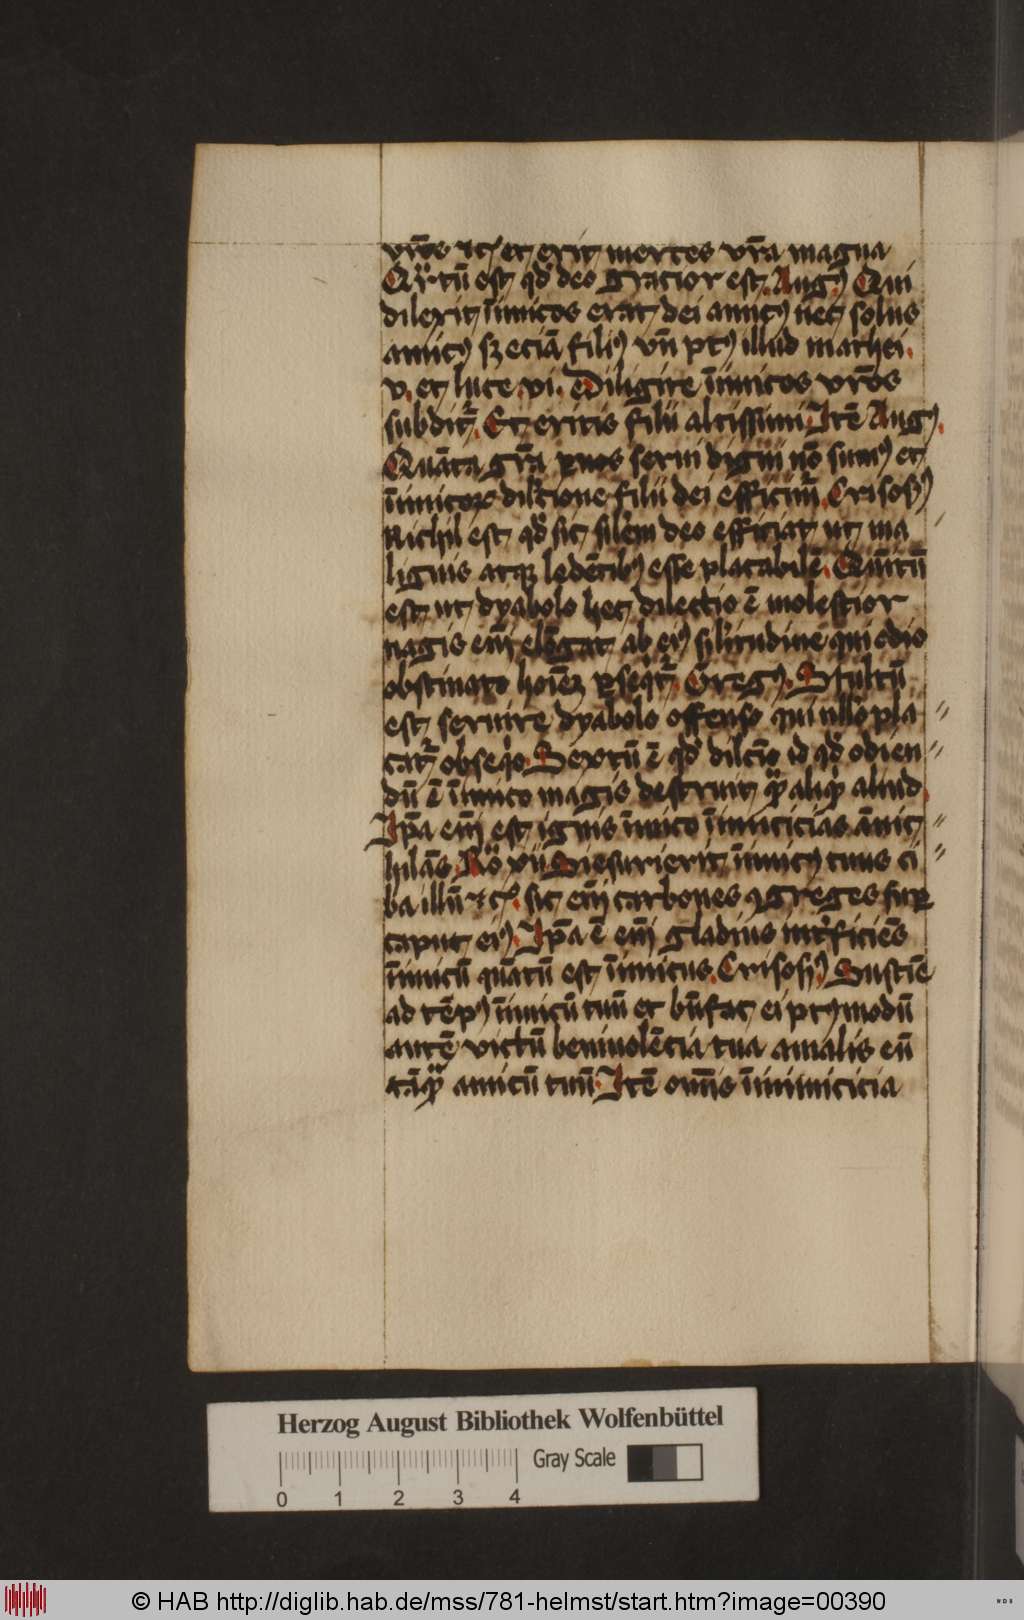 vr̄os ⁊cꝫ et erit merces vr̄a magna
Qͣrtū est qd̓ deo gracior est Augꝰ Qui
dilexit inīicos erat dei amicꝰ nec solus
amicꝰ sꝫ eciā filiꝰ vn̄ ptꝫ illud mathei
v. et luce vi. Diligite inīicos vr̄os
subdit᷑ Et eritis filii altissimi Itē Augꝰ
Quāta gr̄a ꝙ nos serui digni nō sumꝰ et
inīicoꝝ dilc̄ione filii dei efficim᷑ Crisosꝰ
Nichil est qd̓ sic silem̄ deo efficiat ut ma
lignis atqꝫ ledētibꝰ esse placabilē Quītū
est ut dyabolo hec dilectio ē molestior
magis em̄ elōgat ab eiꝰ silitudine qui odio
obstinato hoīeꝫ ꝑseqt᷑ Gregꝰ Stultū
est seruire dyabolo offenso qui nllo pla
cat᷑ obseqͦ Sextū ē qd̓ dilc̄io id qd̓ odien
dū ē inīico magis destruit qͣꝫ aliqd̓ aliud
Ip̄a em̄ est ignis inīico inīicicias ānic
hilās Ro xii Si esurierit inīicꝰ tuus ci
ba illū ⁊cꝫ sic em̄ carbones ꝯgreges suꝑ
caput eiꝰ Ip̄a ē em̄ gladius int᷑ficiēs
inīicū quātū est inīicus Crisosꝰ Sustīe
ad tēpꝰ inīicū tuū et bn̄fac ei ptꝫ modū
autē victū beniuolēcia tua amabis eū
tāqͣꝫ amicū tuū Itē omīs inīimicicia
Herzog August Bibliothek Wolfenbüttel
Gray Scale
0 1 2 3 4
© HAB http://diglib.hab.de/mss/781-helmst/start.htm?image=00390